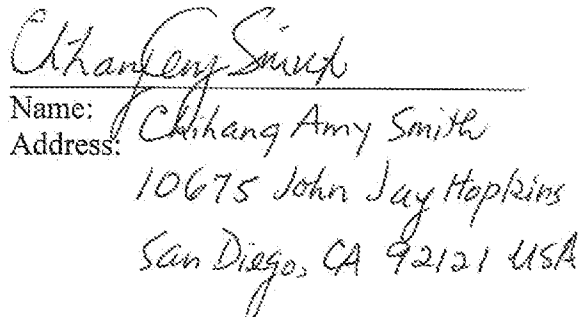 Smith
Name: Chihang Amy Smith
Address:
10675 John Jay Hopkins
San Diego, CA 92121 USA